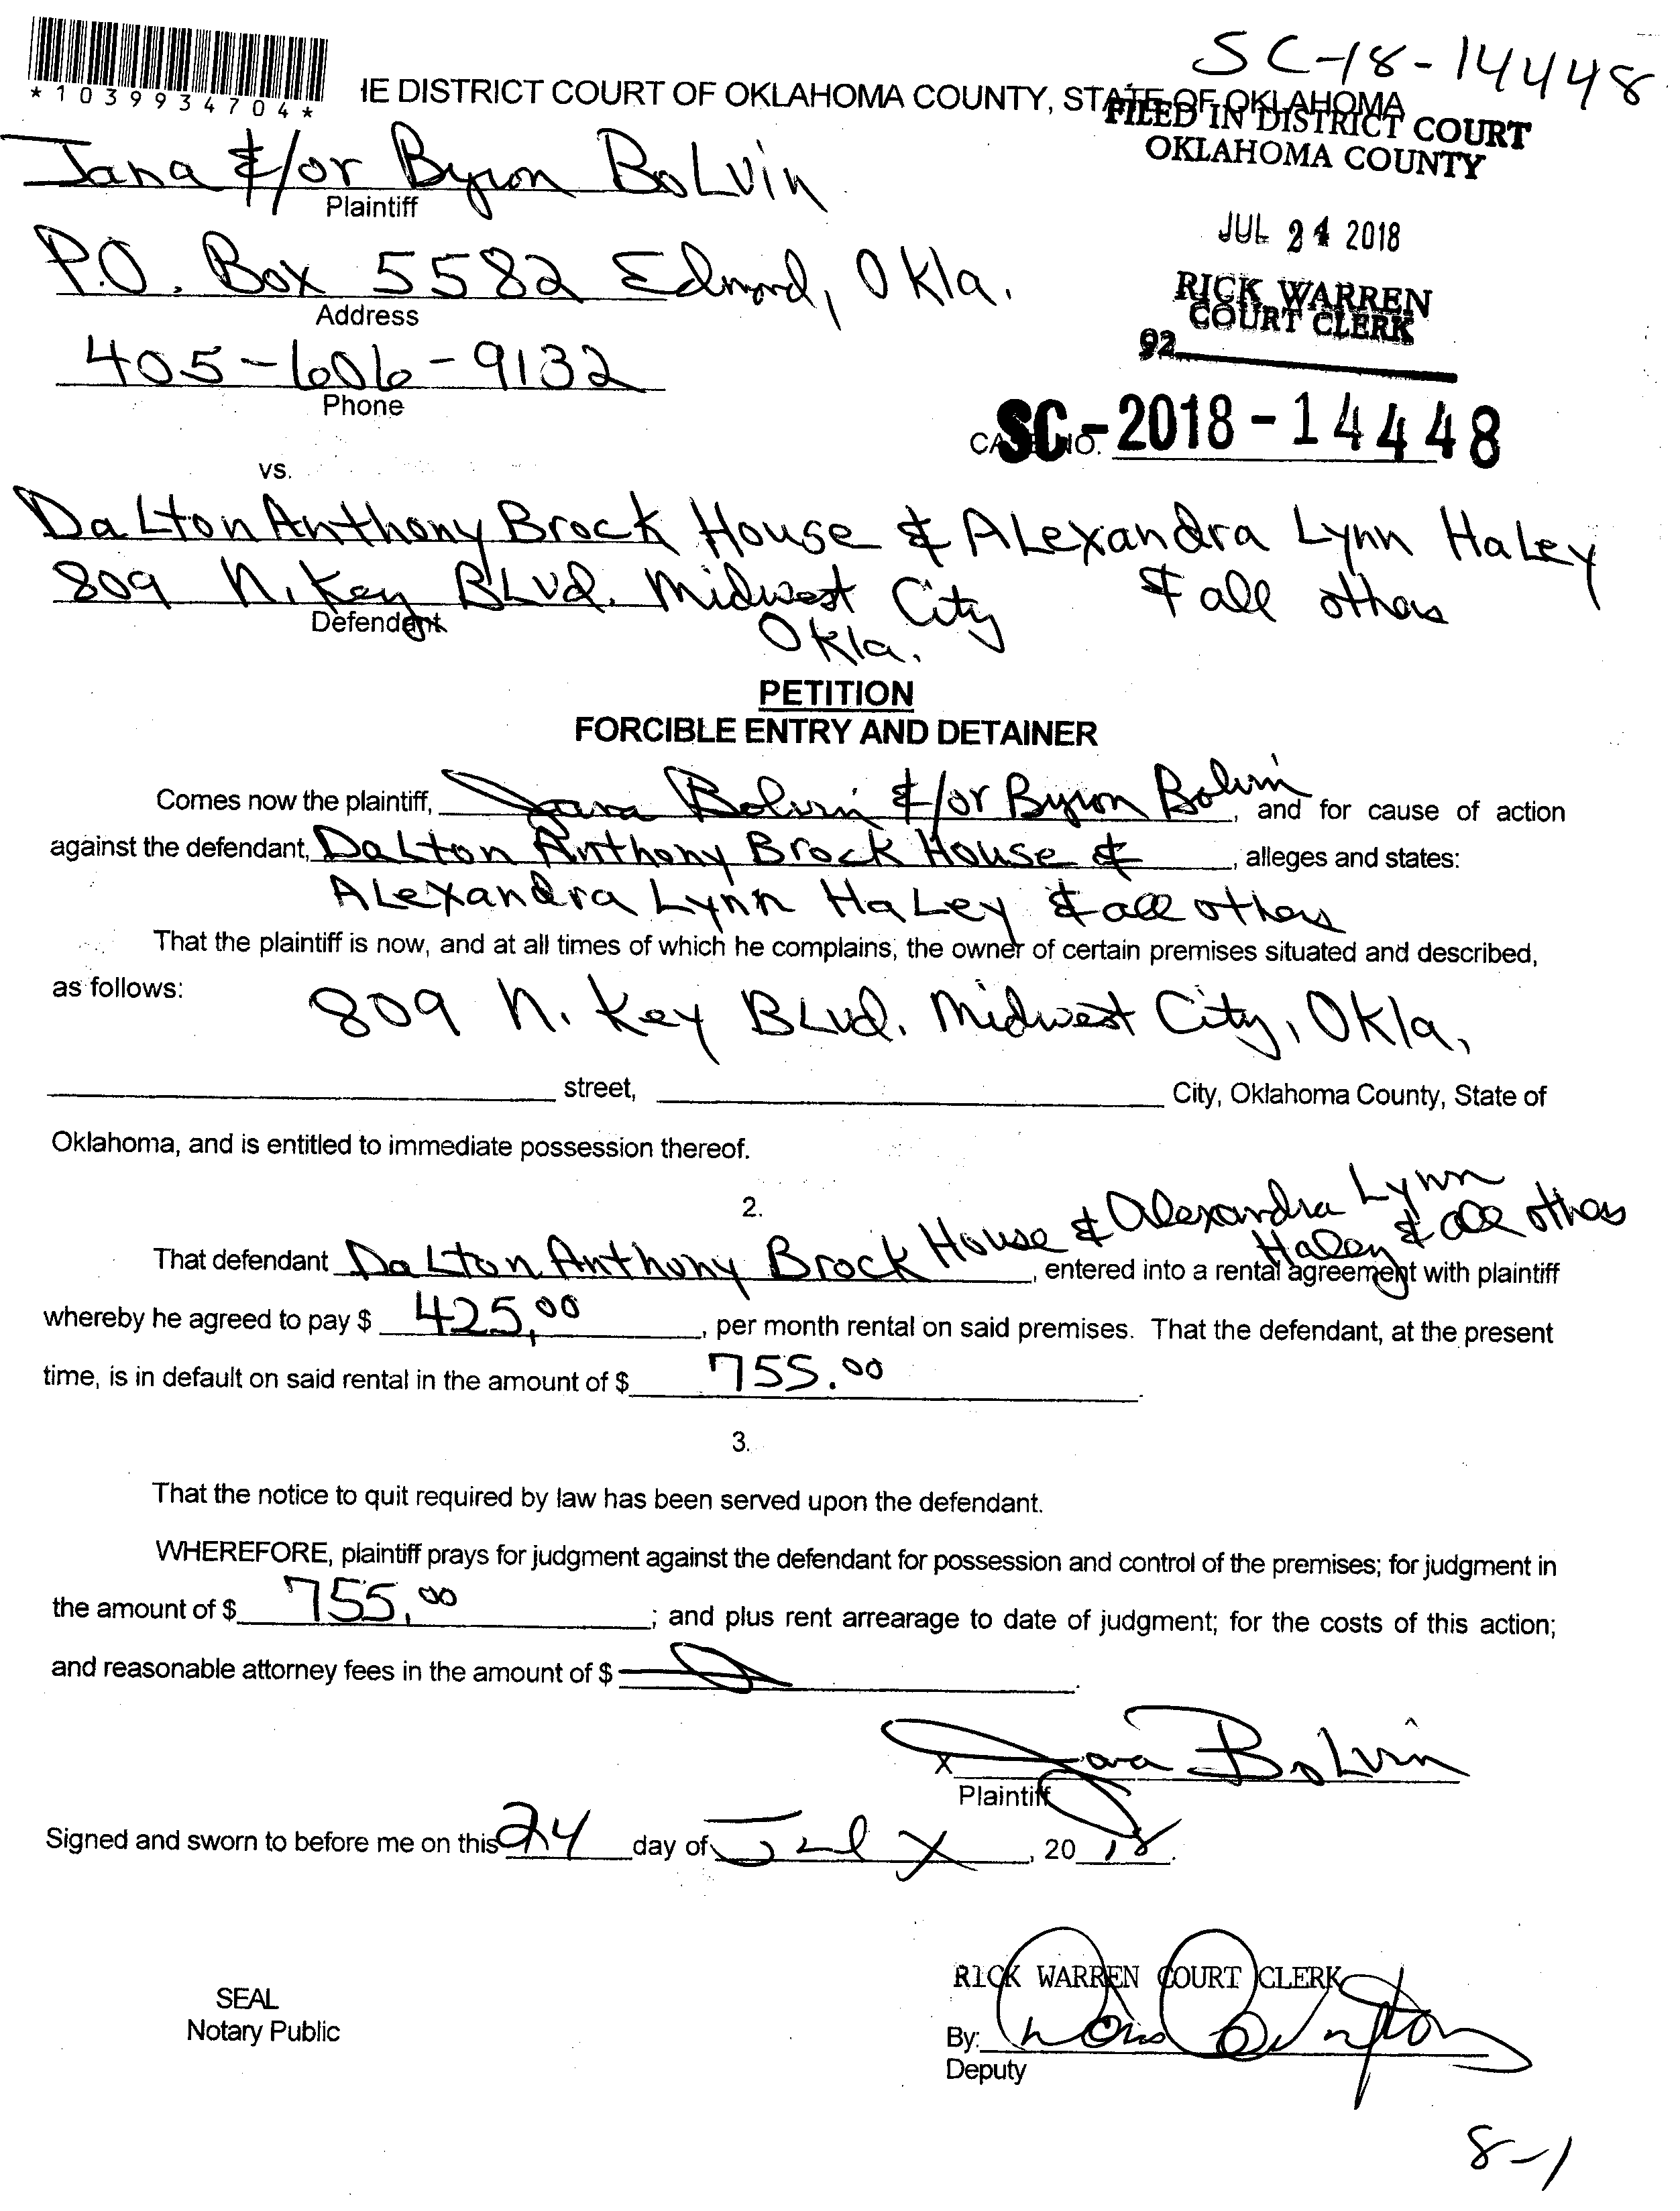 SC-18-14448
*1039934704*
IE DISTRICT COURT OF OKLAHOMA COUNTY, STATE OF OKLAHOMA
FILED IN DISTRICT COURT
OKLAHOMA COUNTY
Jana &/or Byron BoLvin
Plaintiff
JUL 24 2018
P.O. Box 5582 Edmond, Okla.
Address
RICK WARREN
COURT CLERK
92
405-606-9132
Phone
CASE NO. SC-2018-14448
vs.
DaLton Anthony Brock House & ALexandra Lynn HaLey
809 N. Key BLvd. Midwest City & all others
Okla.
Defendant
PETITION
FORCIBLE ENTRY AND DETAINER
Comes now the plaintiff, Jana Bolvin &/or Byron Bolvin, and for cause of action
against the defendant, DaLton Anthony Brock House &, alleges and states:
ALexandra Lynn HaLey & all others
That the plaintiff is now, and at all times of which he complains, the owner of certain premises situated and described,
as follows: 809 N. Key BLvd. Midwest City, Okla.
street, City, Oklahoma County, State of
Oklahoma, and is entitled to immediate possession thereof.
2.
That defendant DaLton Anthony Brock House & Alexandra Lynn Haley & all others, entered into a rental agreement with plaintiff
whereby he agreed to pay $ 425.00, per month rental on said premises. That the defendant, at the present
time, is in default on said rental in the amount of $ 755.00.
3.
That the notice to quit required by law has been served upon the defendant.
WHEREFORE, plaintiff prays for judgment against the defendant for possession and control of the premises; for judgment in
the amount of $ 755.00; and plus rent arrearage to date of judgment; for the costs of this action;
and reasonable attorney fees in the amount of $
x Jana BoLvin
Plaintiff
Signed and sworn to before me on this 24 day of July, 2018.
RICK WARREN COURT CLERK
SEAL
Notary Public
By:
Deputy
8-1